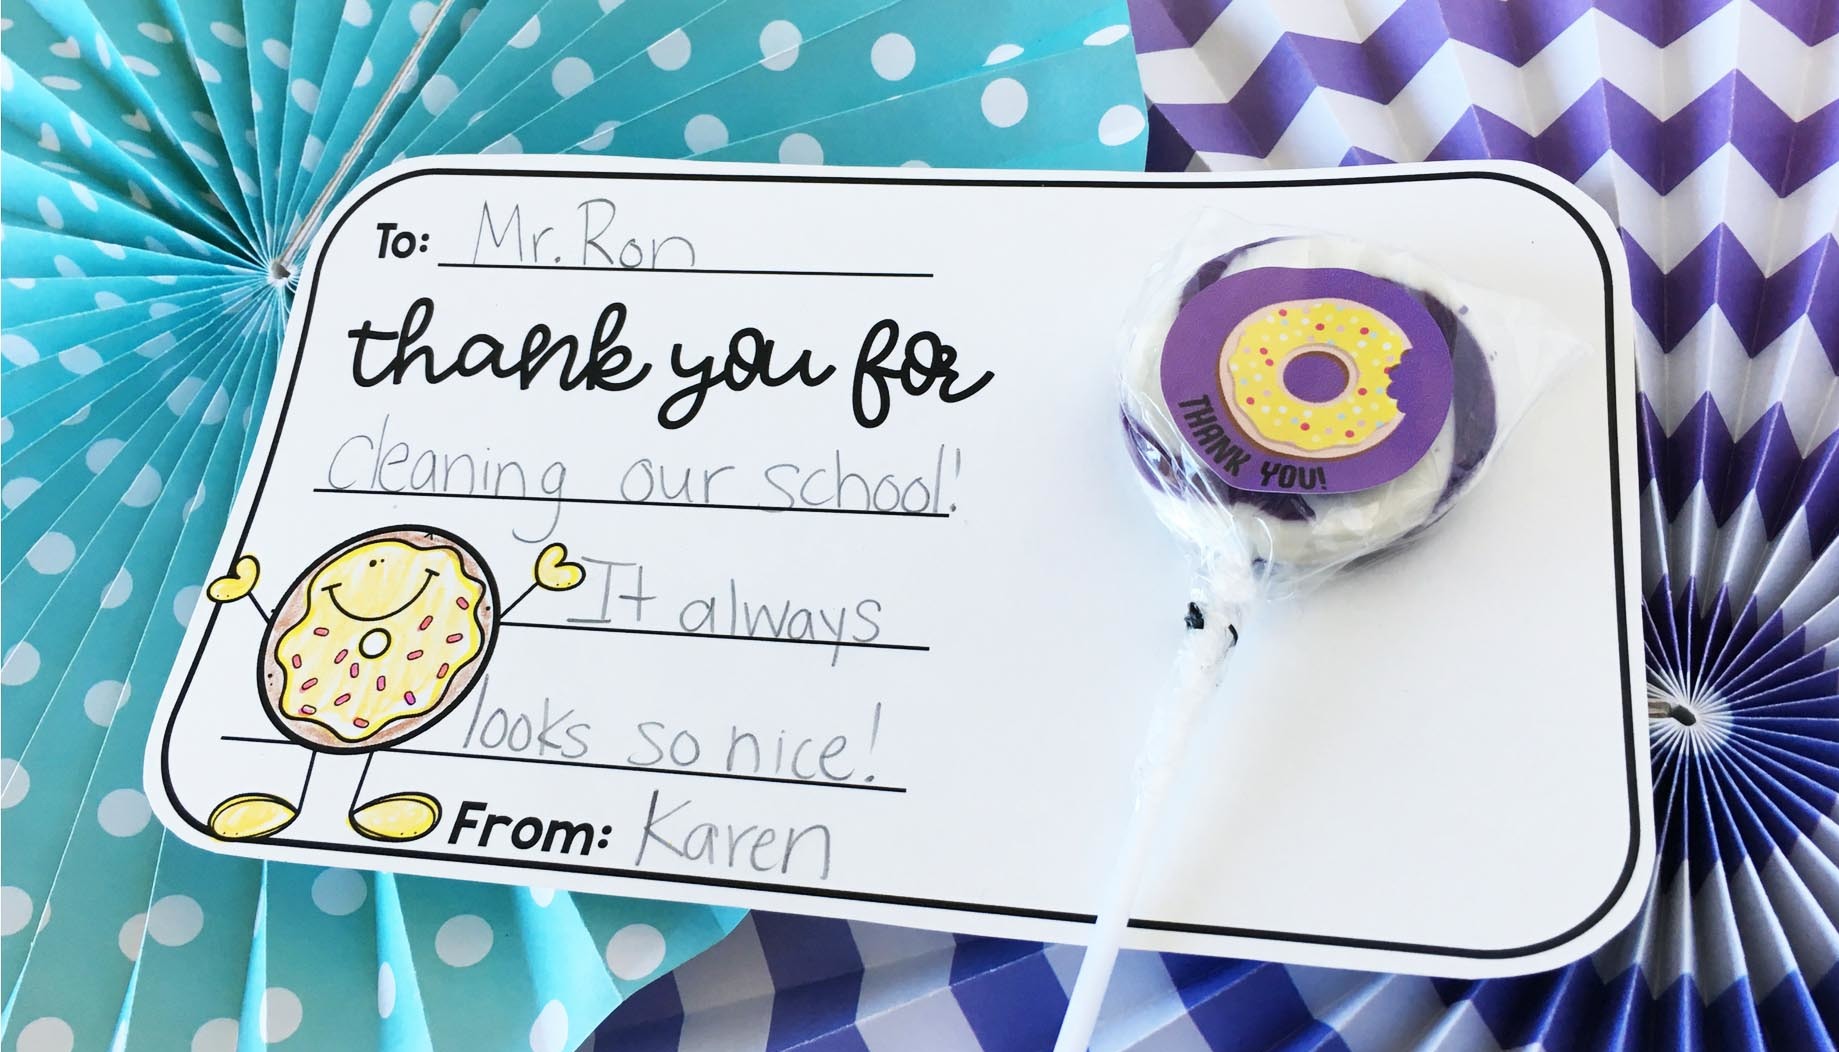 To: Mr. Ron
thank you for
cleaning our school!
It always
looks so nice!
From: Karen
THANK YOU!